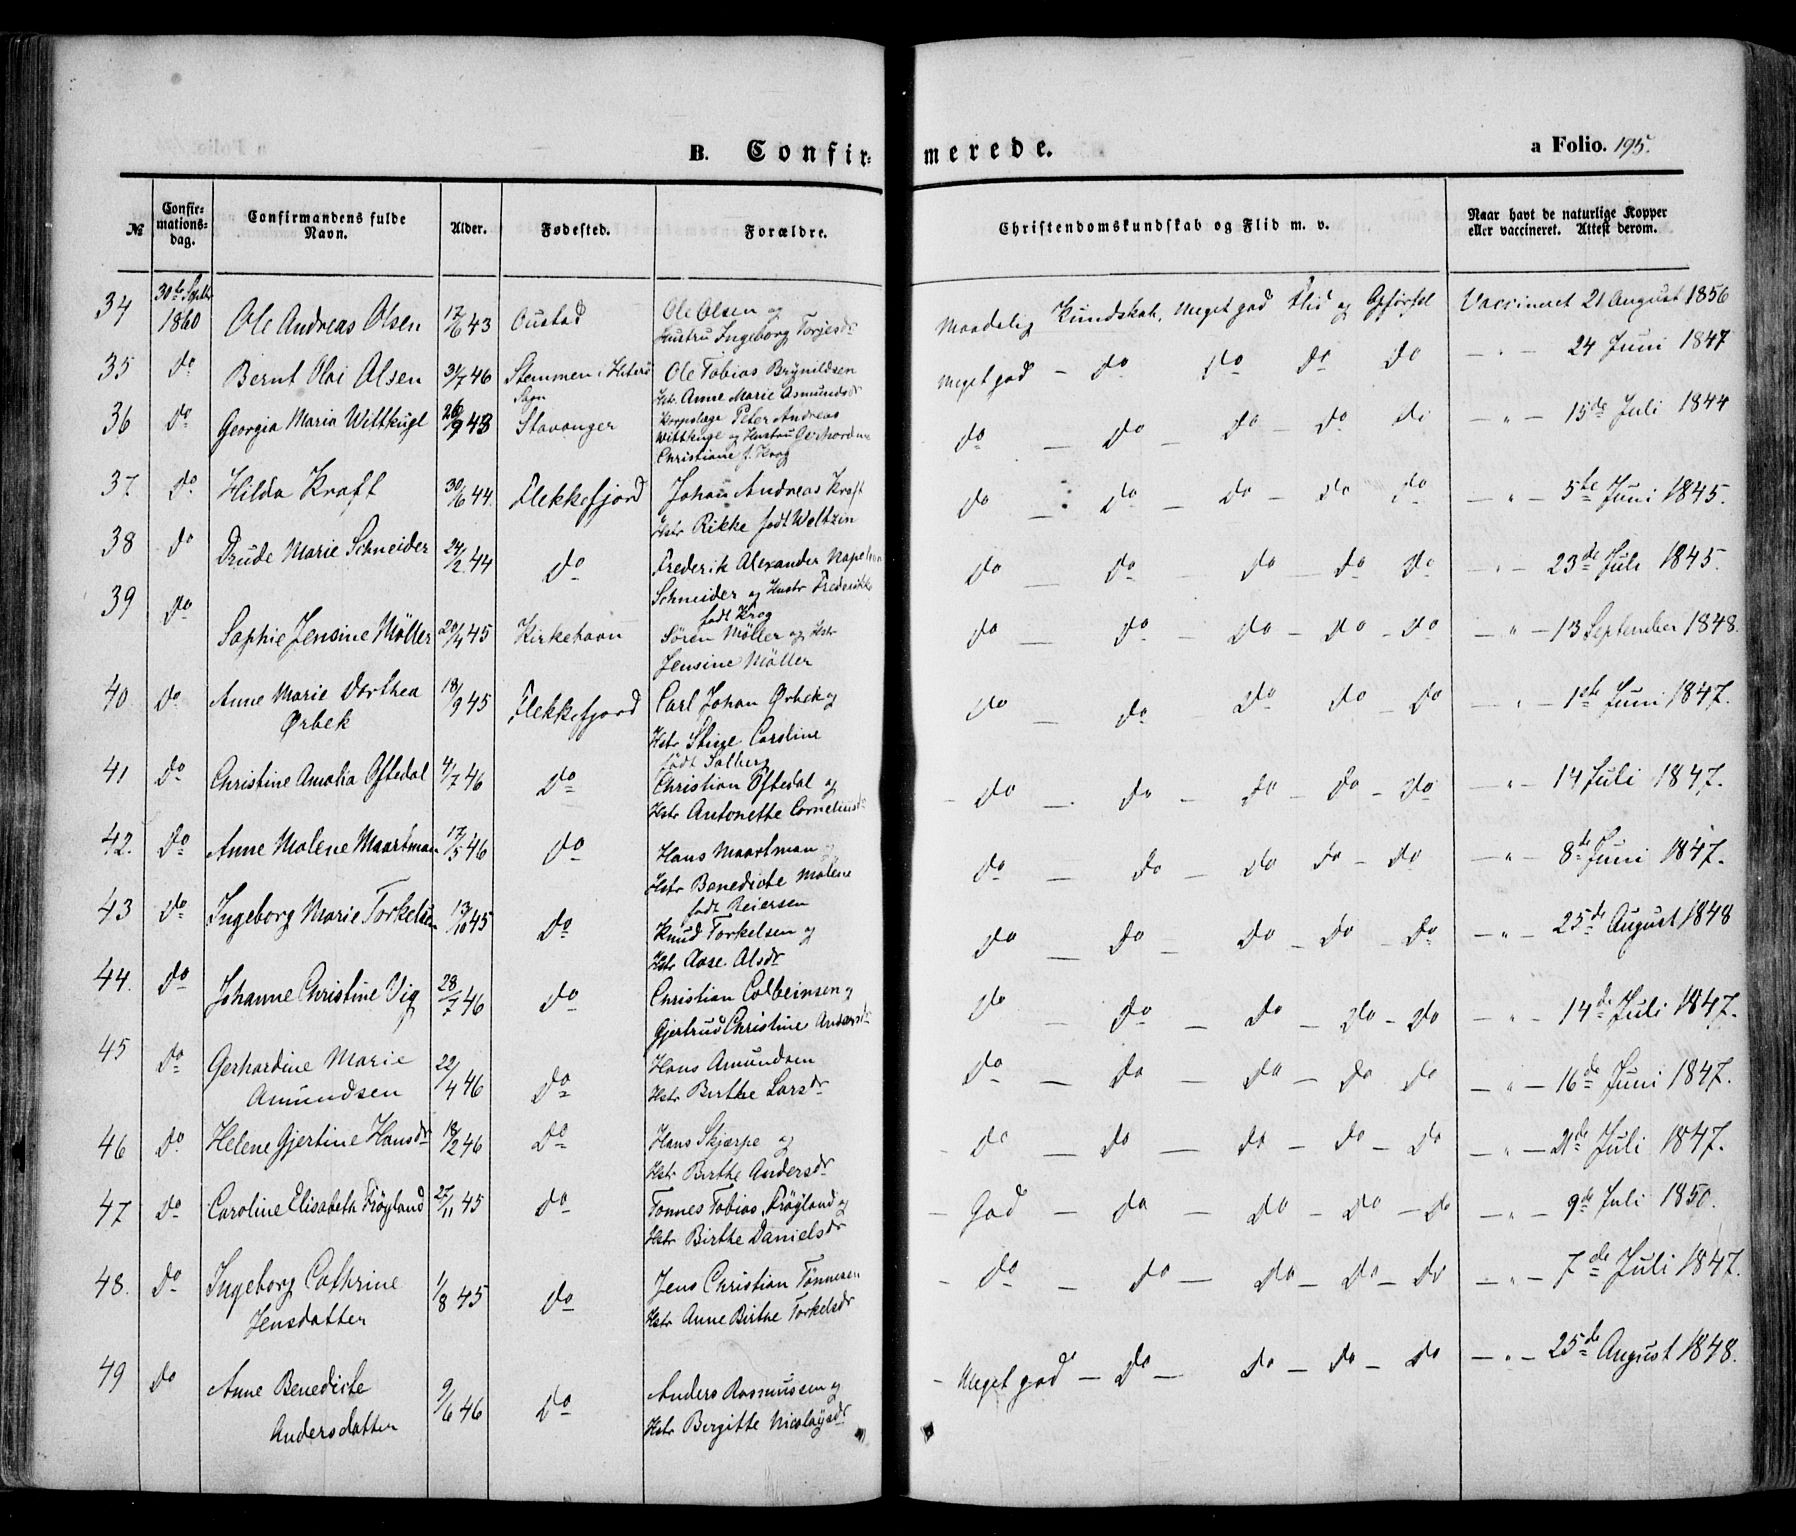 B. Confirmerede.
a Folio. 195.
№ Confirmationsdag. Confirmandens fulde Navn. Alder. Fødested. Forældre. Christendomskundskab og Flid m. v. Naar havt de naturlige Kopper eller vaccineret. Attest derom.
34 30te Septbr 1860 Ole Andreas Olsen 17/6 43 Oustad Ole Olsen og
Hustru Ingeborg Torjesdr
Maadelig Kundskab, meget god Flid og Opførsel Vaccineret 21 August 1856
35 do Bernt Olai Olsen 31/7 46 Stemmen i Hiterø Sogn Ole Tobias Brynildsen
Hstr. Anne Marie Asmundsdr
meget god – do do do do – " – 24 Juni 1847
36 do Georgia Maria Wittkugl 26/9 43 Stavanger Korpslæge Peter Andreas
Wittkugl og Hustru Gerhardine
Christiane f. Krog
do – do – do – do do – " – 15de Juli 1844
37 do Hilda Kraft 30/6 44. Flekkefjord Johan Andreas Kraft
Hstr Rikke født Weltzin
do – do – do – do do – " – 5te Juni 1845.
38 do Drude Marie Schneider 24/2 44 do Frederik Alexander Napoleon
Schneider og Hustr Frederikke
født Krog
do – do – do – do do – " – 23de Juli 1845.
39 do Sophie Jensine Møller 20/4 45 Kirkehavn Søren Møller og Hstr
Jensine Møller
do – do – do – do – do – " – 13 September 1848.
40 do Anne Marie Dorthea
Ørbek 18/9 45 Flekkefjord Carl Johan Ørbek og
Hstr Stine Caroline
født Solberg
do – do do do do – " – 1ste Juni 1847.
41 do Christine Amalia Oftedal 4/7 46 do Christian Oftedal og
Hstr Antonette Corneliusdr
– do – do – do – do – do – " – 14 Juli 1847.
42. do Anne Malene Maartman 17/5 46 do Hans Maartman og
Hstr Benedicte Malene
født Beiersen
do – do – do do – do – " – 8de Juni 1847.
43 do Ingeborg Marie Torkelsen 13/10 45 do Knud Torkelsen og
Hstr Aase Alsdr
do do – do – do – do – " – 25de August 1848
44. do Johanne Christine Vig 28/7 46 do Christian Colbeinsen og
Gjertrud Christine Andersdr
do – do – do – do – do – " – 14de Juli 1847.
45 do Gerhardine Marie
Amundsen 22/4 46 do Hans Amundsen
Hstr Birthe Larsdr
do – do – do – do do – " – 16de Juni 1847.
46 do Helene Gjertine Hansdr 18/2 46 do Hans Skjærpe og
Hstr Birthe Andersdr
– do – do – do – do – do – " – 21de Juli 1847.
47 do Caroline Elisabeth Frøyland 27/11 45 do Tønnes Tobias Frøyland og
Hstr Birthe Danielsdr
– God – do – do – do – do – " – 9de Juli 1850.
48. do Ingeborg Cathrine
Jensdatter 1/8 45 do Jens Christian Tønnesen
Hstr Anne Birthe Torkelsdr
– do – do – do – do – do – " – 7de Juli 1847.
49 do Anne Benedicte
Andersdatter 9/6 46 do Anders Rasmussen og
Hstr Birgitte Nicolaysdr
– meget god – do – do – do – do – " – 25de August 1848.